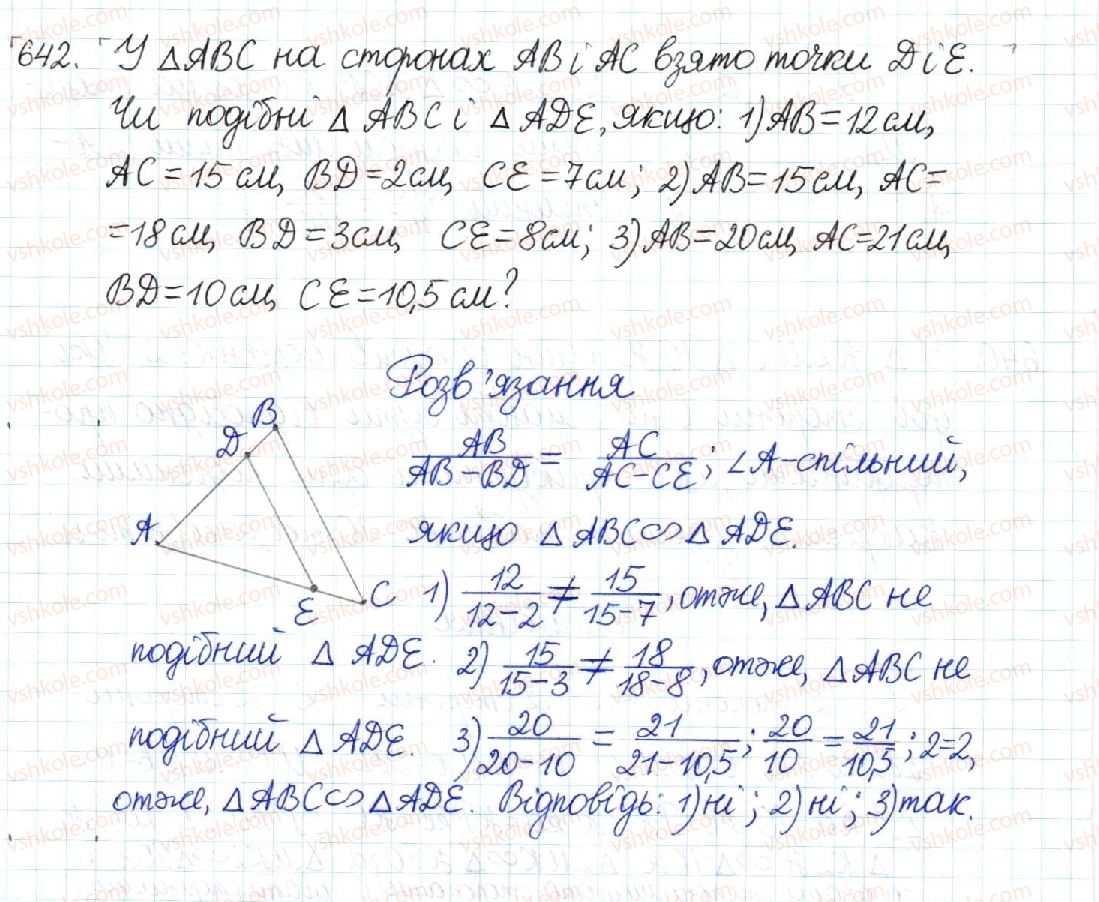 642. У △ABC на сторонах AB і AC взято точки D і E.
Чи подібні △ ABC і △ ADE, якщо: 1) AB=12 см,
AC=15 см, BD=2 см, CE=7 см; 2) AB=15 см, AC=
=18 см, BD=3 см, CE=8 см; 3) AB=20 см, AC=21 см,
BD=10 см, CE=10,5 см?
Розв'язання
B
D
A
E
C
AB/(AB-BD) = AC/(AC-CE); ∠A-спільний,
якщо △ ABC∽△ ADE.
1) 12/(12-2) ≠ 15/(15-7), отже, △ABC не
подібний △ ADE. 2) 15/(15-3) ≠ 18/(18-8), отже, △ABC не
подібний △ ADE. 3) 20/(20-10) = 21/(21-10,5); 20/10 = 21/10,5; 2=2,
отже, △ABC∽△ADE. Відповідь: 1) ні; 2) ні; 3) так.
vshkole.com